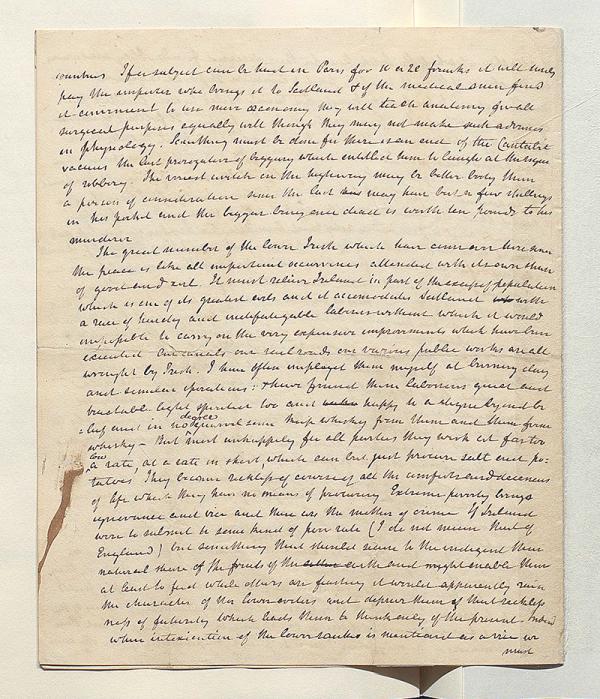 countries. If a subject can be had in Paris for 10 or 20 franks it will surely
pay the importer who brings it to Scotland & if the medical men find
it convenient to use more oeconomy they will teach anatomy for all
surgical purposes equally well though they may not make such advances
in physiology. Something must be done for there is an end of the Cantabit
vacuus the last prerogative of beggary which entitled him to laugh at the risque
of robbery. The veriest wretch on the highway may be better booty than
a person of consideration since the last may have but a few shillings
in his pocket and the beggar being once dead is worth ten pounds to his
murderer
The great number of the lower Irish which have come over here since
the peace is like all important occurrences attended with its own share
of good and evil. It must relieve Ireland in part of the excess of population
which is one of its greatest evils and it accomodates Scotland with
a race of hardy and indefatigable labourers without which it would
impossible to carry on the very expensive improvements which have been
executed. Our canals our rail roads our various public works are all
wrought by Irish. I have often employed them myself at burning clay
and similar operations & have found them labourers quiet and
tractable light spirited too and happy to a degree beyond be-
-lief and in no degree quarrelsome keep whisky from them and them from
whisky – But most unhappily for all parties they work at far too
low a rate, at a rate in short, which can but just procure salt and po-
tatoes They become reckless of course of all the comforts and decencies
of life which they have no means of procuring Extreme poverty brings
ignorance and vice and these are the mother of crime If Ireland
were to submit to some kind of poor rate (I do not mean that of
England) but something that should secure to the indigent their
natural share of the fruits of the earth and might enable them
at least to feed while others are feasting it would apparently raise
the character of the lower orders and deprive them of that reckless-
ness of futurity which leads them to think only of the present. Indeed
when intoxication of the lower ranks is mentiond as a vice we
must